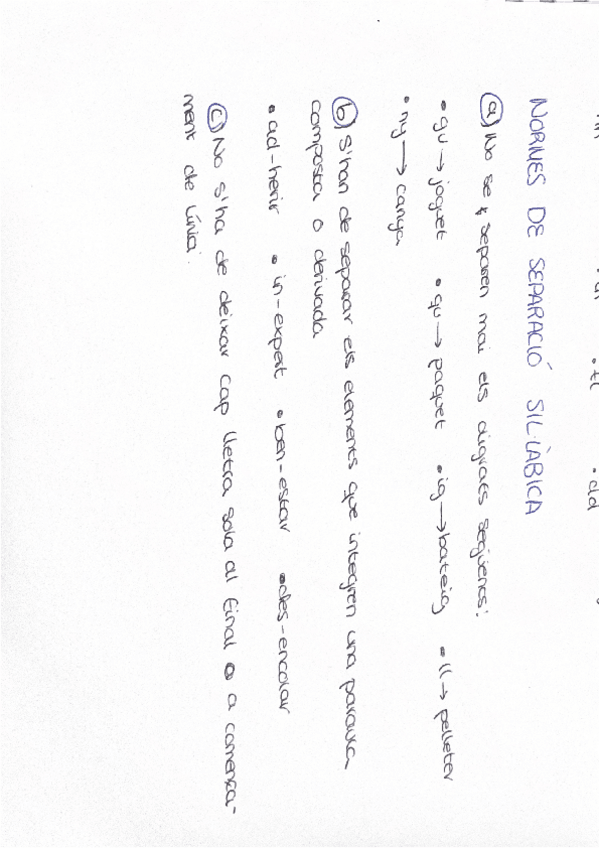 • tl • dd
NORMES DE SEPARACIÓ SIL·LÀBICA
a) No se separen mai els dígrafs següents:
• gu → joguet • qu → paquet • ig → bateig • ll → pelleter
• ny → canya
b) S'han de separar els elements que integren una paraula
composta o derivada
• ad-herir • in-expert • ben-estar • des-encolar
c) No s'ha de deixar cap lletra sola al final o a comença-
ment de línia.